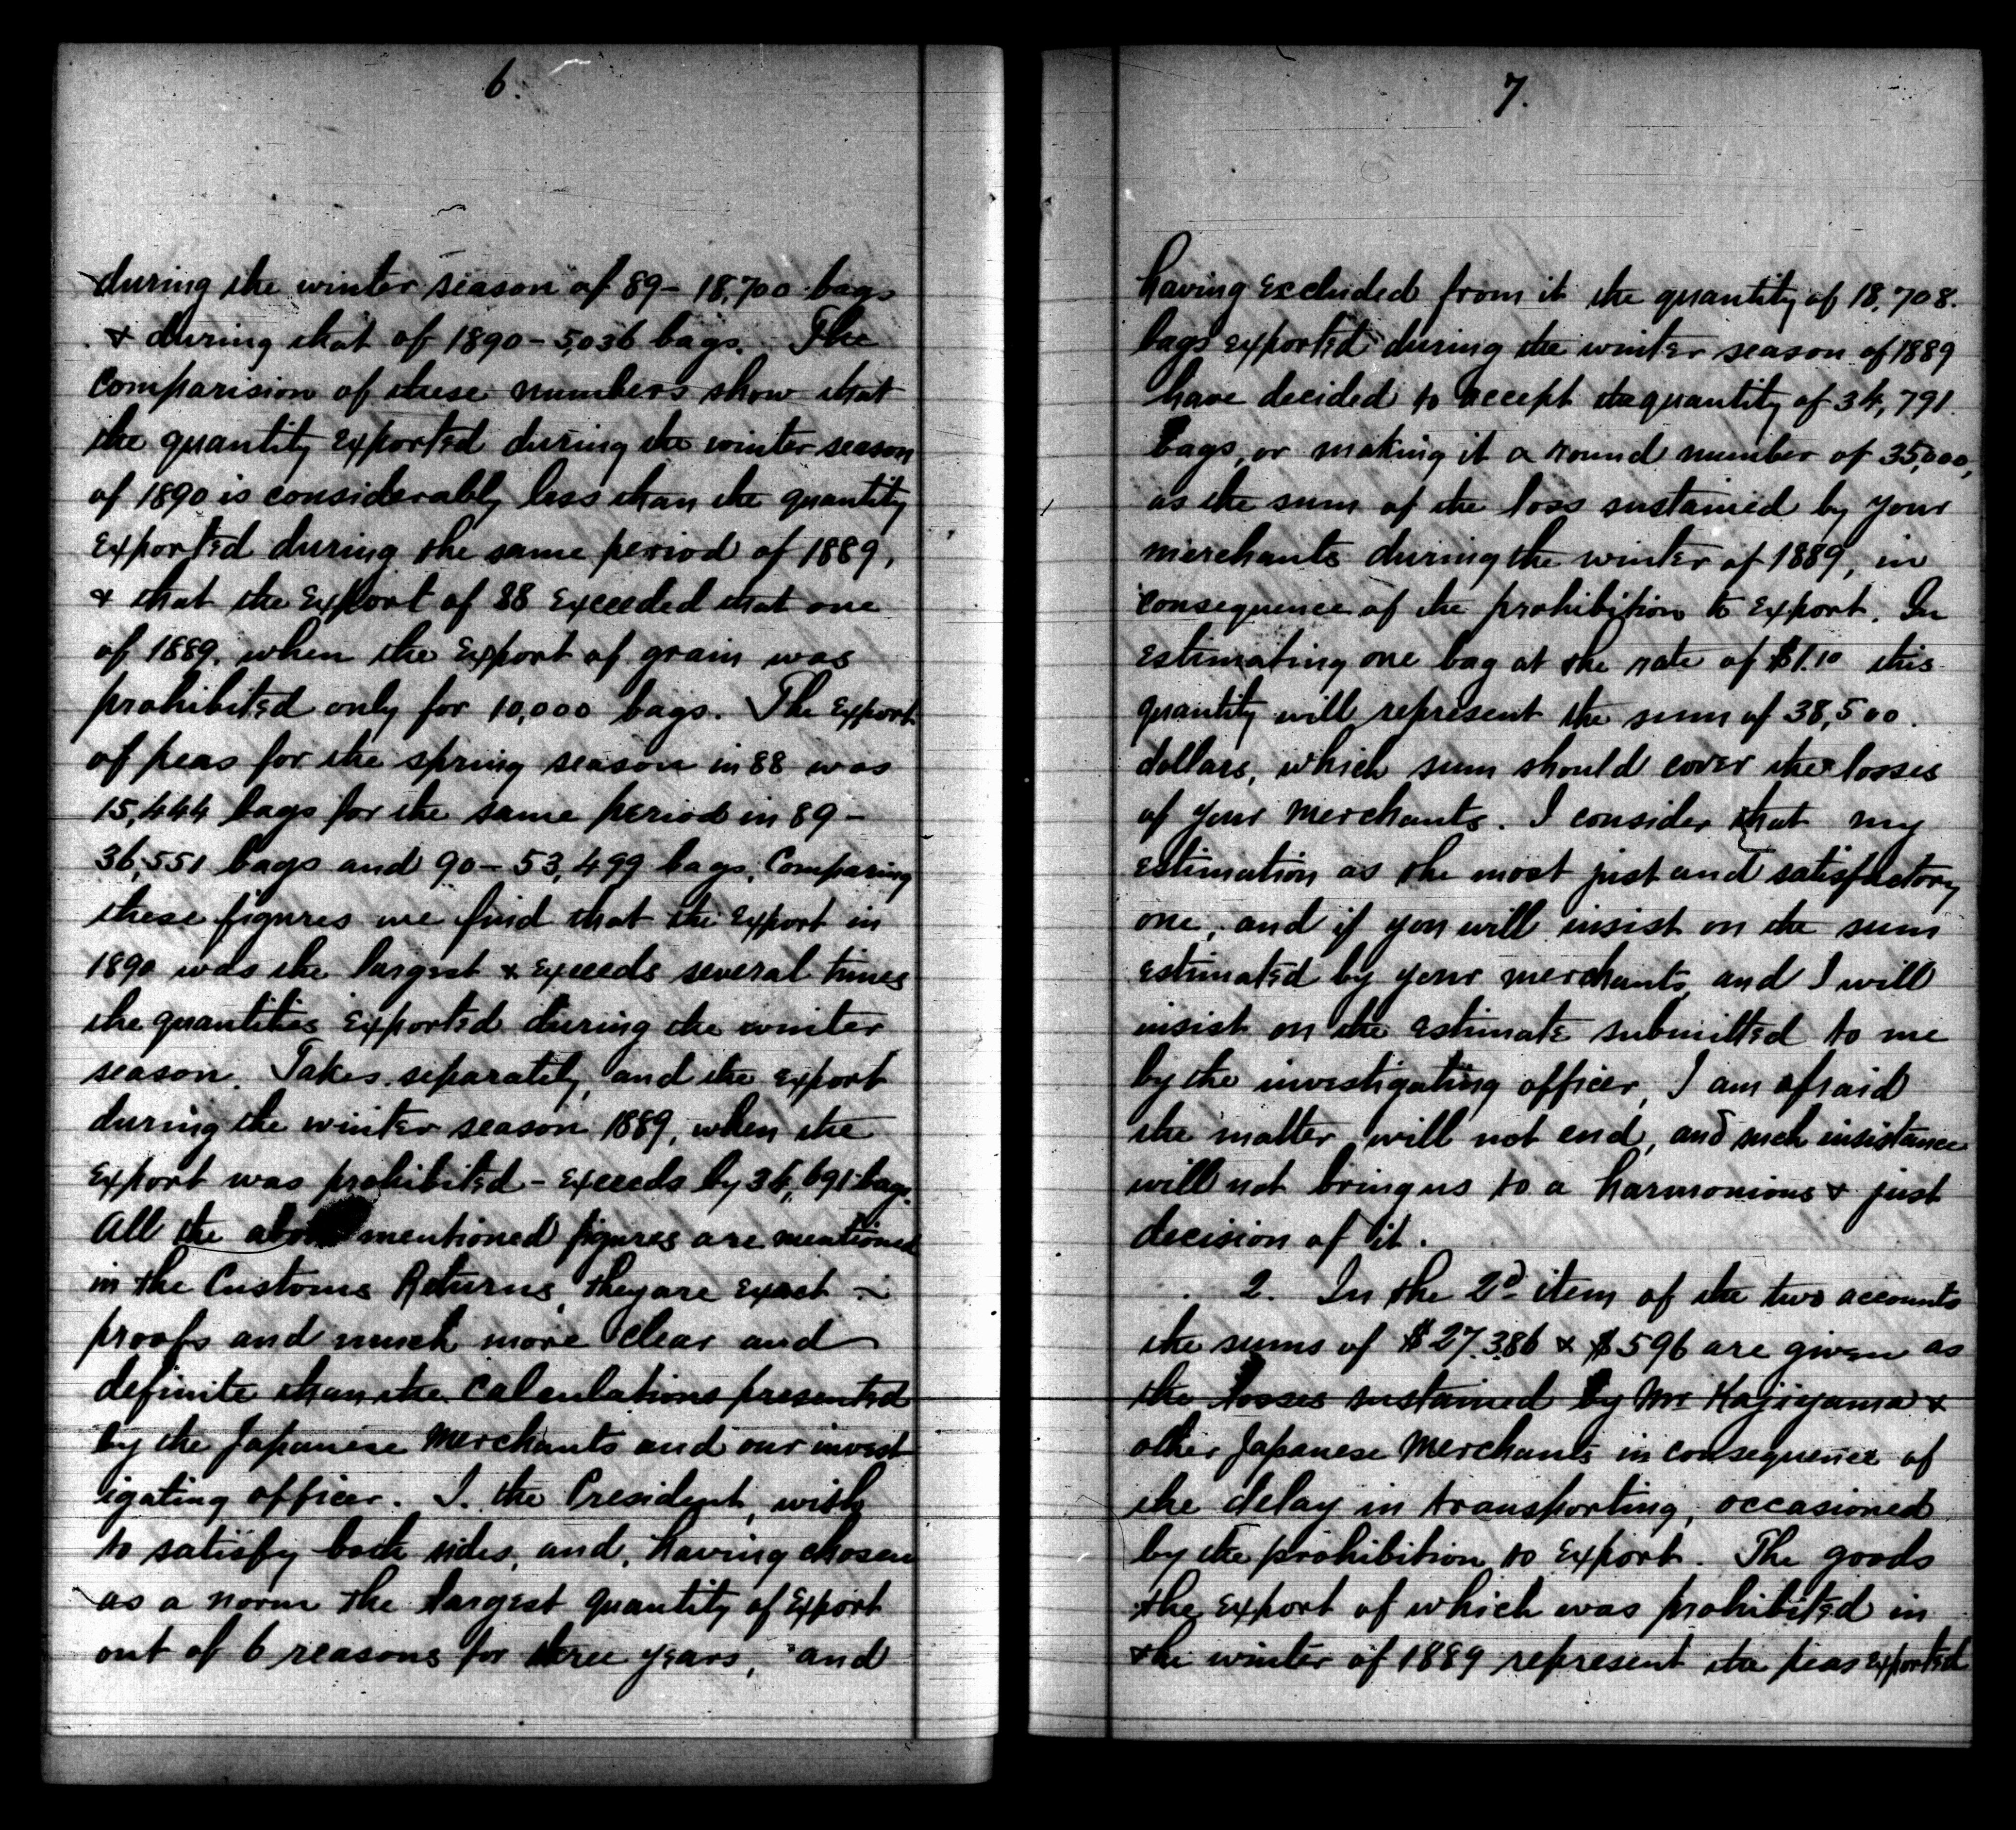 6.
during the winter season of 89 - 18,700 bags
& during that of 1890 - 5,036 bags. The
Comparision of these numbers show that
the quantity exported during the winter season
of 1890 is considerably less than the quantity
exported during the same period of 1889,
& that the export of 88 exceeded that one
of 1889, when the export of grain was
prohibited only for 10,000 bags. The export
of peas for the spring season in 88 was
15,444 bags for the same period in 89 -
36,551 bags and 90 - 53,499 bags. Comparing
these figures we find that the export in
1890 was the largest & exceeds several times
the quantities exported during the winter
season. Takes separately, and the export
during the winter season 1889, when the
export was prohibited - exceeds by 34,691 bags.
All the above mentioned figures are mentioned
in the Customs Returns, they are exact
proofs and much more clear and
definite than the calculations presented
by the Japanese Merchants and our invest
igating officer. I. the President, wish
to satisfy both sides, and, having chosen
as a norm the largest quantity of export
out of 6 reasons for three years, and
7.
having excluded from it the quantity of 18,708.
bags exported during the winter season of 1889
have decided to accept the quantity of 34,791
bags, or making it a round number of 35,000,
as the sum of the loss sustained by your
merchants during the winter of 1889, in
consequence of the prohibition to export. In
estimating one bag at the rate of $1.10 this
quantity will represent the sum of 38,500.
dollars, which sum should cover the losses
of your Merchants. I consider that my
estimation as the most just and satisfactory
one, and if you will insist on the sum
estimated by your merchants, and I will
insist on the estimate submitted to me
by the investigating officer, I am afraid
the matter will not end, and such insistance
will not bring us to a harmonious & just
decision of it.
2. In the 2d item of the two accounts
the sums of $27.386 & $596 are given as
the losses sustained by Mr Kajiyama &
other Japanese Merchants in consequence of
the delay in transporting, occasioned
by the prohibition to export. The goods
the export of which was prohibited in
the winter of 1889 represent the peas exported